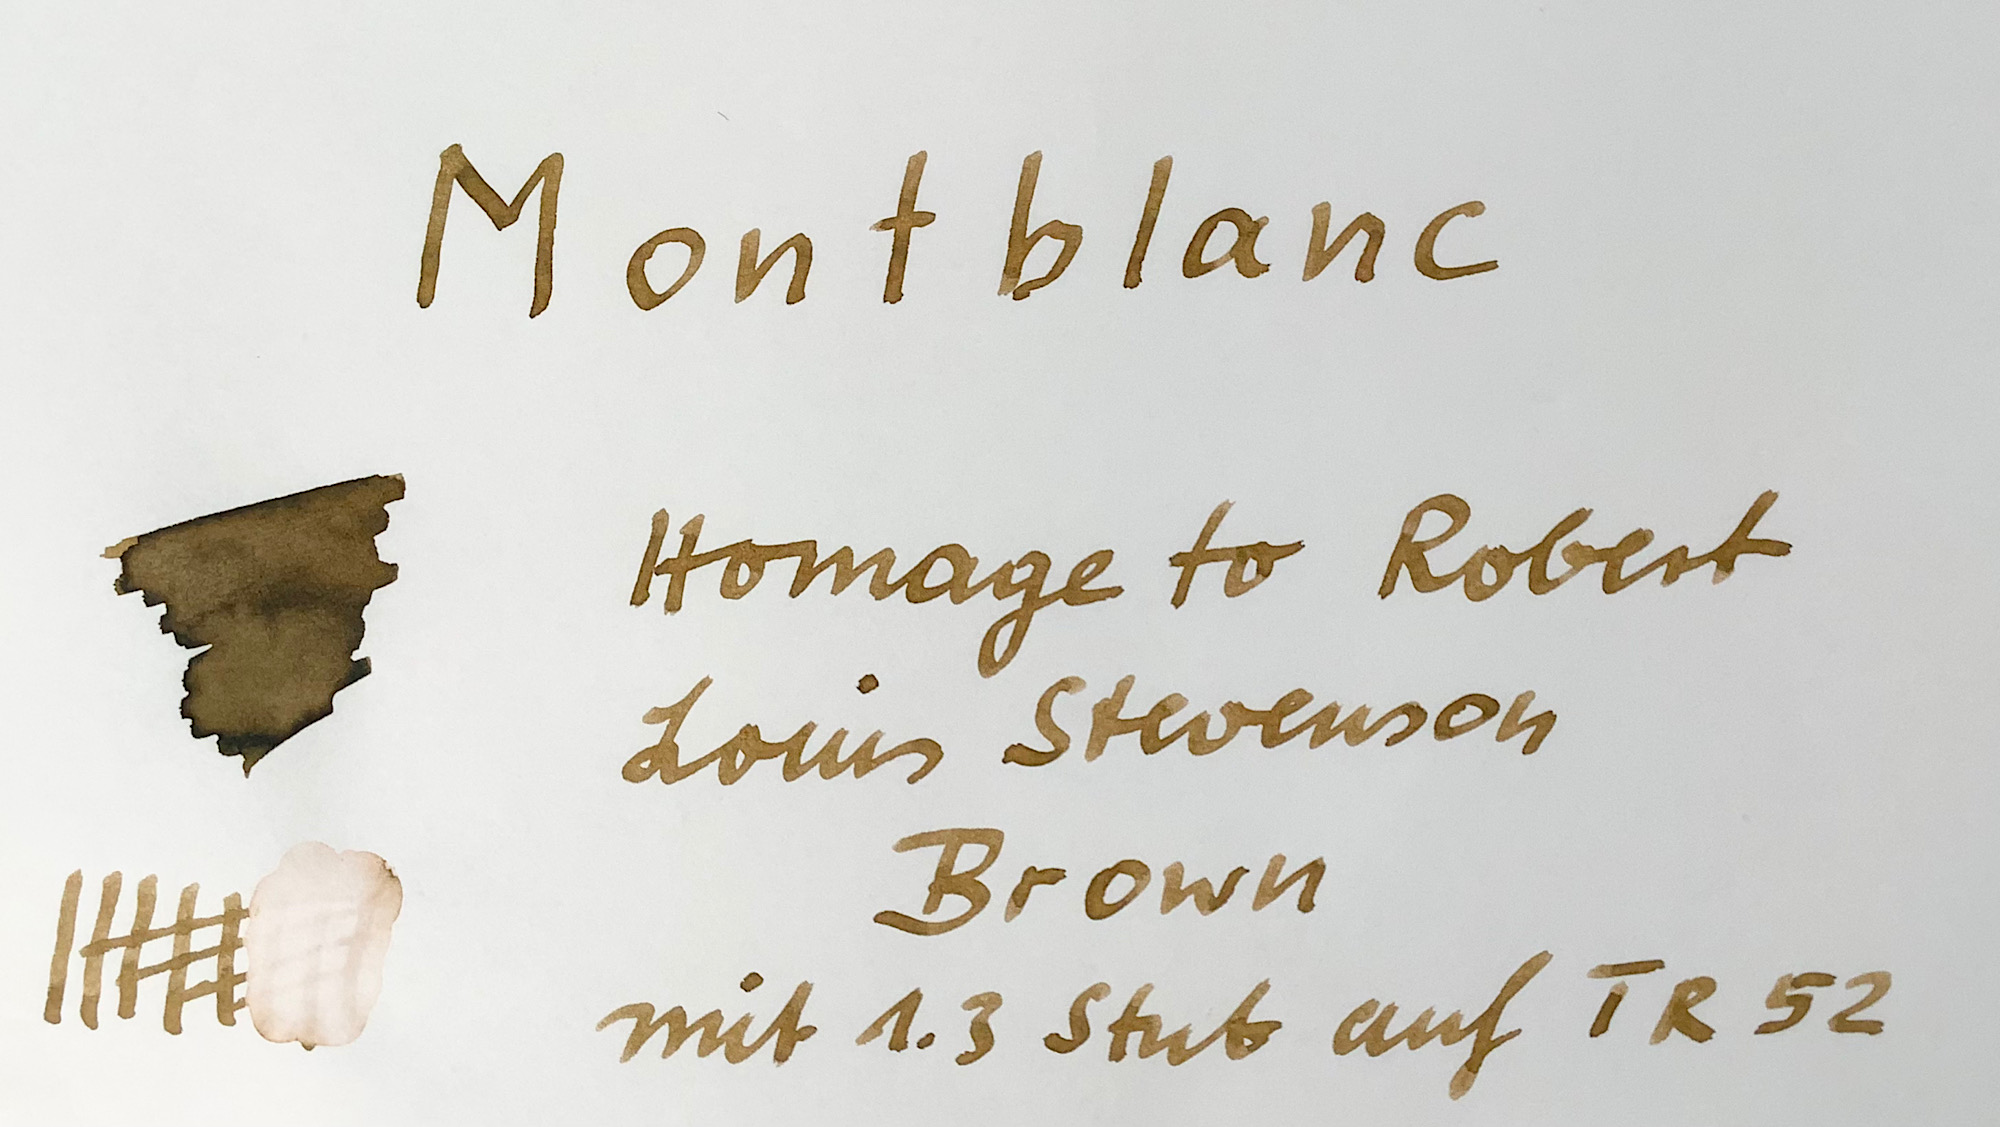 Montblanc
Homage to Robert
Louis Stevenson
Brown
mit 1.3 Stub auf TR 52